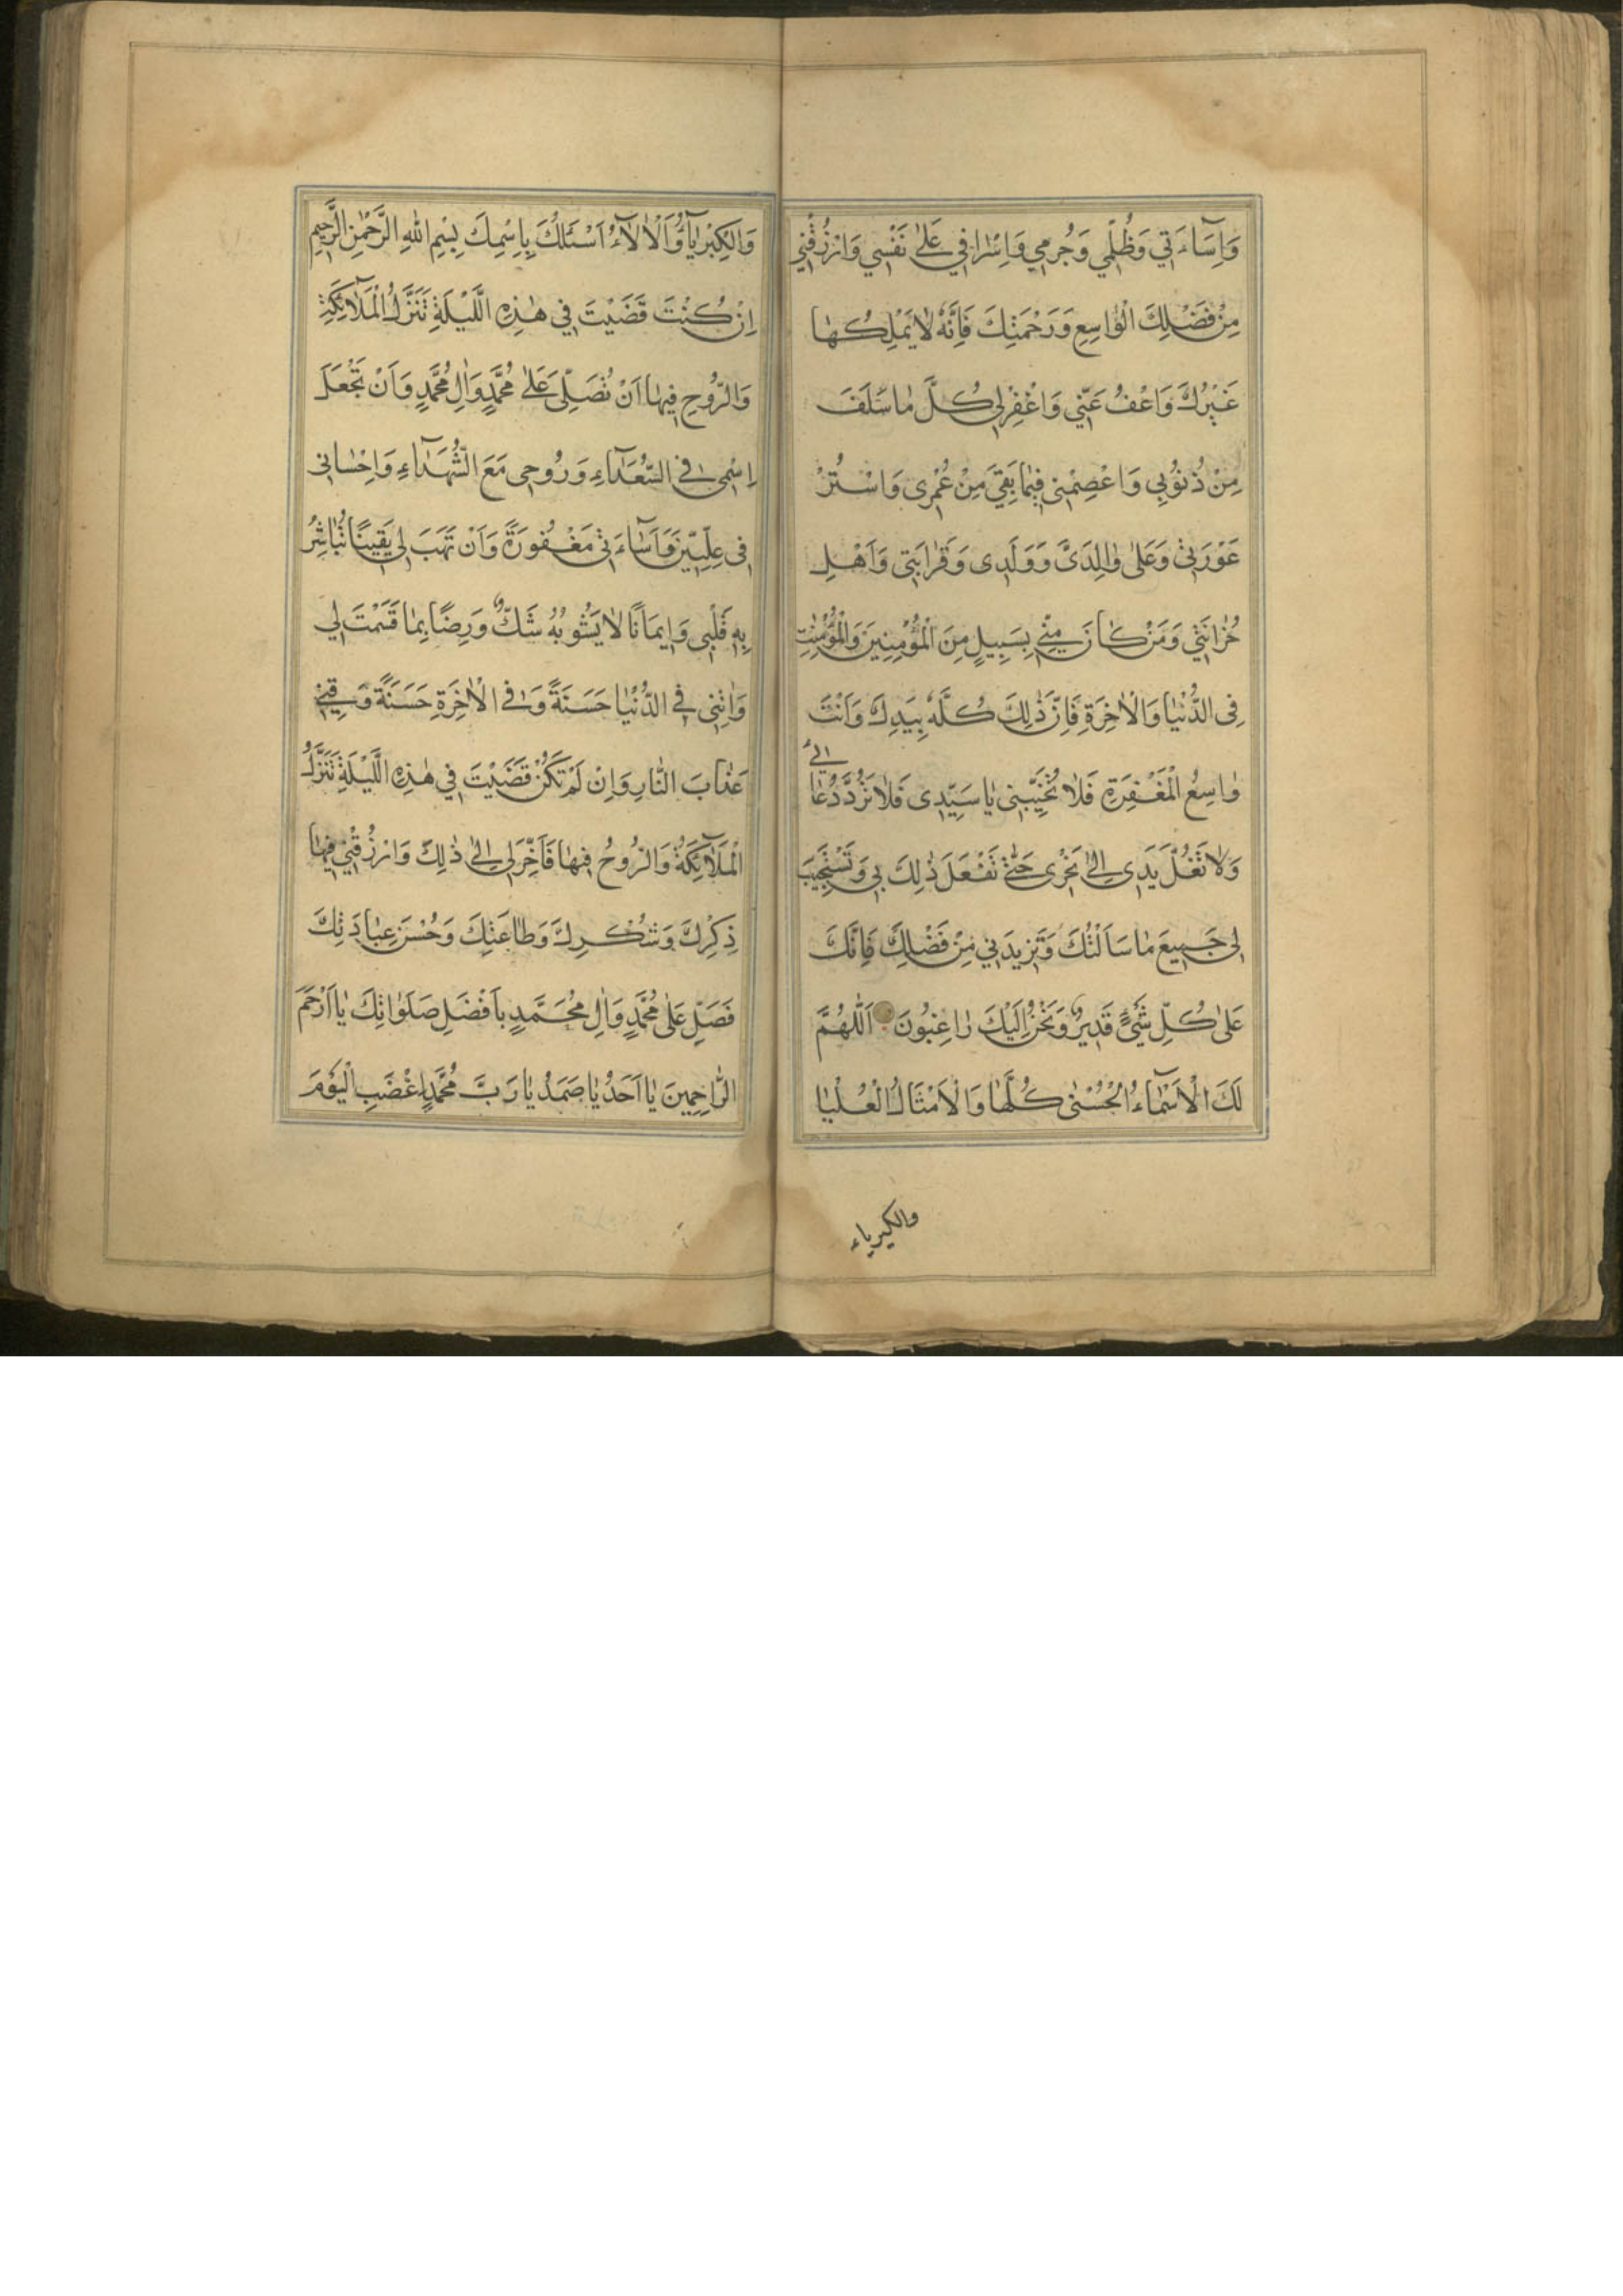 وَاِسَاءَتِي وَظُلْمِي وَجُرْمِي وَاِسْرَافِي عَلٰى نَفْسِي وَارْزُقْنِي
مِنْ فَضْلِكَ الْوٰاسِعِ وَرَحْمَتِكَ فَاِنَّهُ لٰا يَمْلِكُهٰا
غَيْرُكَ وَاعْفُ عَنِّي وَاغْفِرْ لِي كُلَّ مٰا سَلَفَ
مِنْ ذُنُوْبِي وَاعْصِمْنِي فِيمٰا بَقِيَ مِنْ عُمْرِي وَاسْتُرْ
عَوْرَتِي وَعَلٰى وٰالِدَيَّ وَوَلَدِي وَقَرٰابَتِي وَاَهْلِ
حُزٰانَتِي وَمَنْ كٰانَ مِنِّي بِسَبِيلٍ مِنَ الْمُؤْمِنِينَ وَالْمُؤْمِنٰتِ
فِي الدُّنْيٰا وَالْاٰخِرَةِ فَاِنَّ ذٰلِكَ كُلَّهُ بِيَدِكَ وَاَنْتَ
وٰاسِعُ الْمَغْفِرَةِ فَلٰا تُخَيِّبْنِي يٰا سَيِّدِي فَلٰا تَرُدَّ دُعٰائِي
وَلٰا تَغُلَّ يَدِي اِلٰى نَحْرِي حَتّٰى تَفْعَلَ ذٰلِكَ بِي وَتَسْتَجِيبَ
لِي جَمِيعَ مٰا سَاَلْتُكَ وَتَزِيدَنِي مِنْ فَضْلِكَ فَاِنَّكَ
عَلٰى كُلِّ شَيْءٍ قَدِيرٌ وَنَحْنُ اِلَيْكَ رٰاغِبُونَ اَللّٰهُمَّ
لَكَ الْاَسْمٰاءُ الْحُسْنٰى كُلُّهٰا وَالْاَمْثَالُ الْعُلْيٰا
والكبرياء
وَالْكِبْرِيٰاۤءُ وَالْاٰلٰاۤءُ اَسْئَلُكَ بِاِسْمِكَ بِسْمِ اللّٰهِ الرَّحْمٰنِ الرَّحِيمِ
اِنْ كُنْتَ قَضَيْتَ فِي هٰذِهِ اللَّيْلَةِ تَنَزُّلَ الْمَلٰاۤئِكَةِ
وَالرُّوحِ فِيهٰا اَنْ تُصَلِّيَ عَلٰى مُحَمَّدٍ وَاٰلِ مُحَمَّدٍ وَاَنْ تَجْعَلَ
اِسْمِي فِي السُّعَدٰاۤءِ وَرُوحِي مَعَ الشُّهَدٰاۤءِ وَاِحْسٰانِي
فِي عِلِّيِّينَ وَاَسٰاۤءَتِي مَغْفُورَةً وَاَنْ تَهَبَ لِي يَقِينًا تُبٰاشِرُ
بِهِ قَلْبِي وَاِيمَانًا لٰا يَشُوبُهُ شَكٌّ وَرِضًا بِمٰا قَسَمْتَ لِي
وَاٰتِنِي فِي الدُّنْيٰا حَسَنَةً وَفِي الْاٰخِرَةِ حَسَنَةً وَقِنِي
عَذٰابَ النّٰارِ وَاِنْ لَمْ تَكُنْ قَضَيْتَ فِي هٰذِهِ اللَّيْلَةِ تَنَزُّلَ
الْمَلٰاۤئِكَةُ وَالرُّوحُ فِيهٰا فَاَخِّرْ لِي اِلٰى ذٰلِكَ وَارْزُقْنِي فِيهٰا
ذِكْرِكَ وَشُكْرِكَ وَطٰاعَتِكَ وَحُسْنَ عِبٰادَتِكَ
فَصَلِّ عَلٰى مُحَمَّدٍ وَاٰلِ مُحَمَّدٍ بِاَفْضَلِ صَلَوٰاتِكَ يٰا اَرْحَمَ
الرّٰاحِمِينَ يٰا اَحَدُ يٰا صَمَدُ يٰا رَبَّ مُحَمَّدٍ اِغْضَبِ الْيَوْمَ